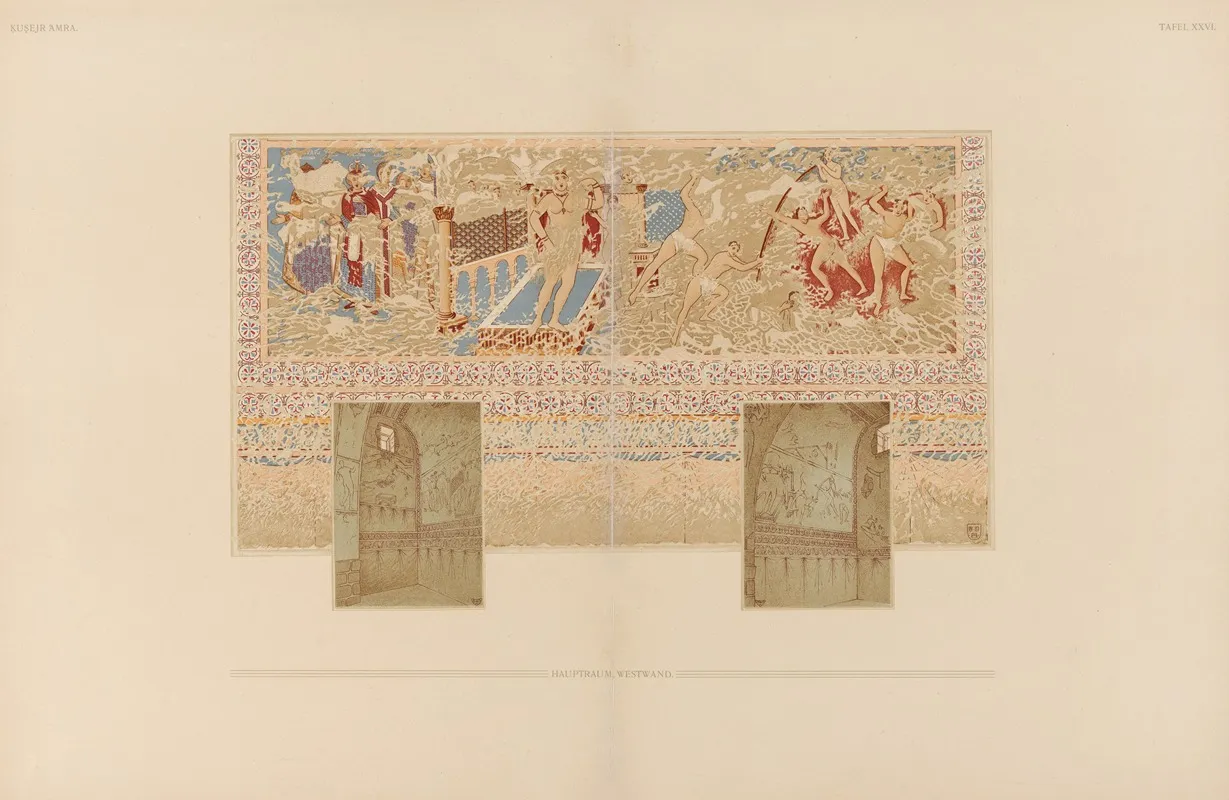 ḲUṢEJR ʿAMRA.
TAFEL XXVI.
HAUPTRAUM, WESTWAND.